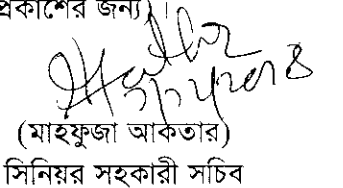 প্রকাশের জন্য)।
(মাহফুজা আকতার)
সিনিয়র সহকারী সচিব